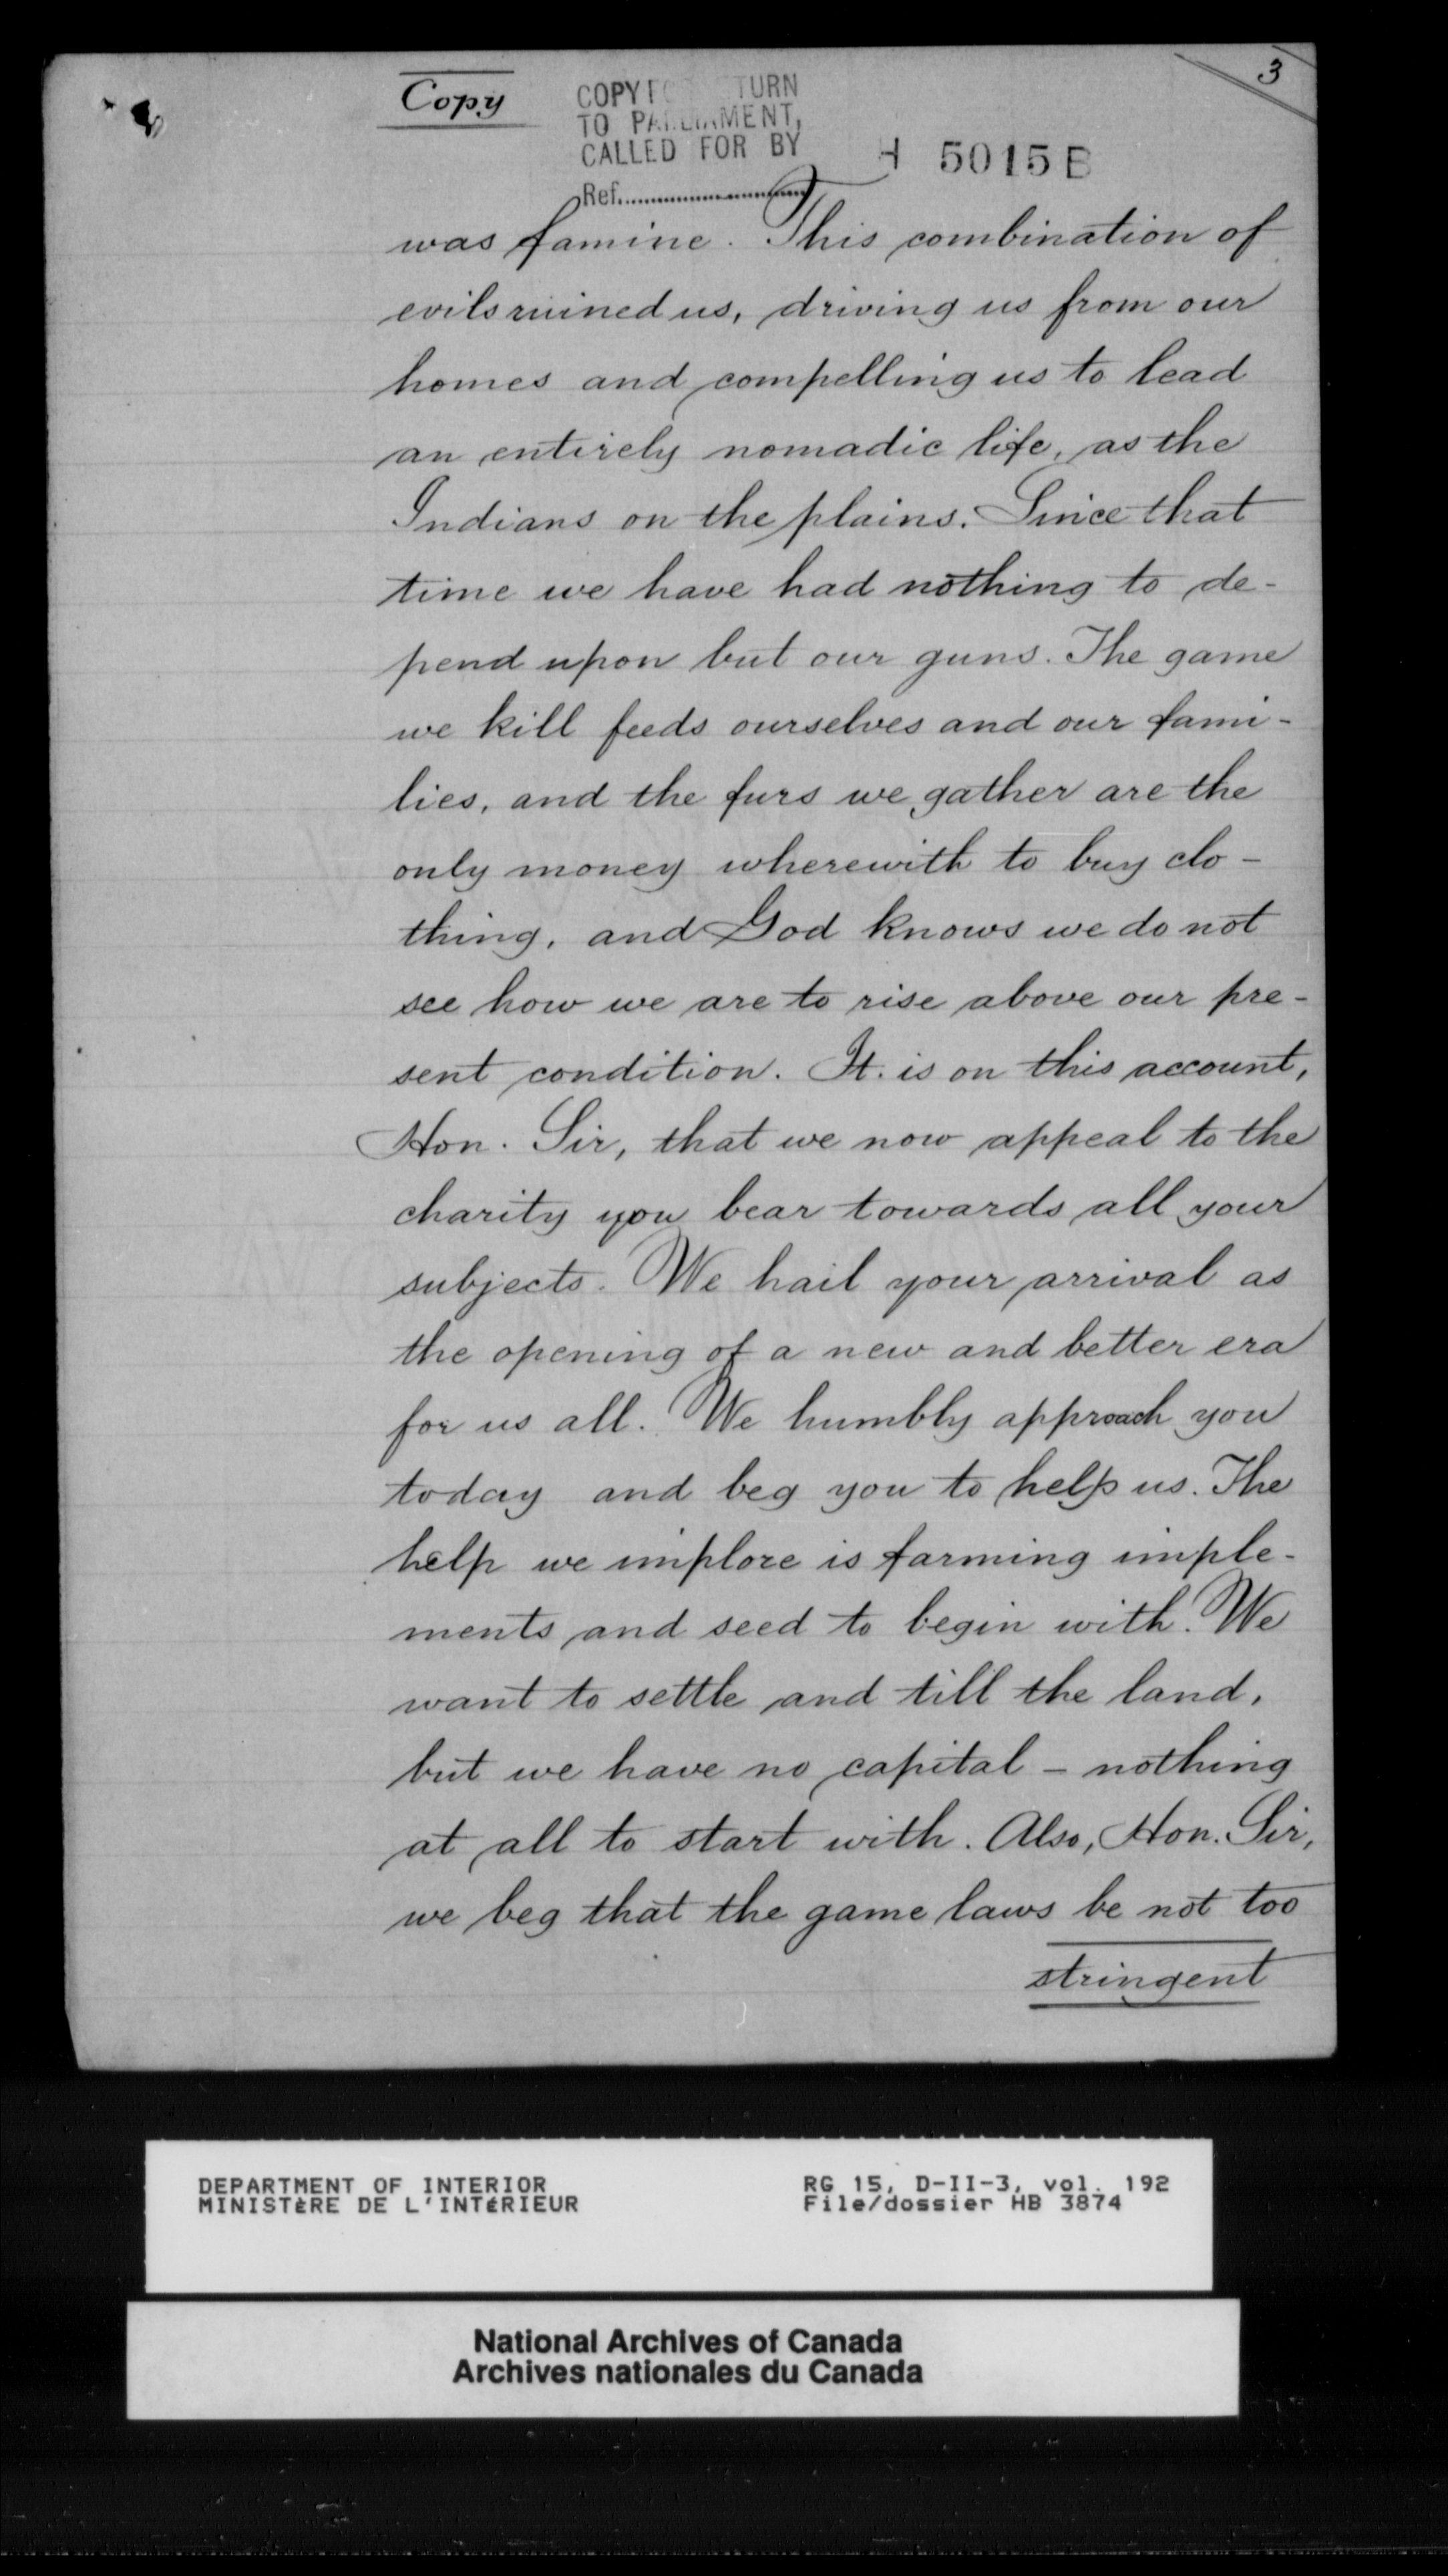 3
Copy
COPY TURN
TO PARLIAMENT,
CALLED FOR BY
H 5015 B
Ref.
was famine. This combination of
evils ruined us, driving us from our
homes and compelling us to lead
an entirely nomadic life, as the
Indians on the plains. Since that
time we have had nothing to de-
pend upon but our guns. The game
we kill feeds ourselves and our fami-
lies, and the furs we gather are the
only money wherewith to buy clo-
thing, and God knows we do not
see how we are to rise above our pre-
sent condition. It is on this account,
Hon. Sir, that we now appeal to the
charity you bear towards all your
subjects. We hail your arrival as
the opening of a new and better era
for us all. We humbly approach you
today and beg you to help us. The
help we implore is farming imple-
ments and seed to begin with. We
want to settle and till the land,
but we have no capital - nothing
at all to start with. Also, Hon. Sir,
we beg that the game laws be not too
stringent
DEPARTMENT OF INTERIOR
MINISTÈRE DE L'INTÉRIEUR
RG 15, D-II-3, vol. 192
File/dossier HB 3874
National Archives of Canada
Archives nationales du Canada